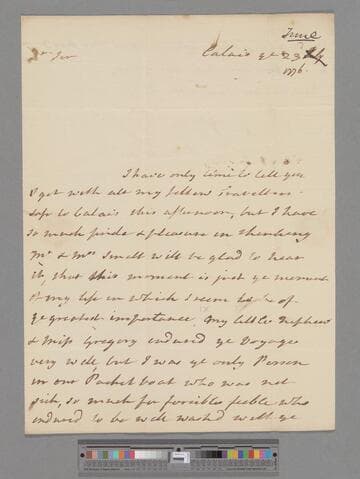 June
Dr Sir Calais ye 23d 24
1776
I have only time to tell you
I got with all my fellow Travellers
safe to Calais this afternoon, but I have
so much pride & pleasure in thinking
Mr & Mrs Smelt will be glad to hear
it, that this moment is just ye moment
of my life in which I seem to be of
ye greatest importance. My little Nephew
& Miss Gregory endured ye Voyage
very well, but I was ye only Person
in our Packet boat who was not
sick, so much for forcible feeble who
endured to be well wash'd with ye